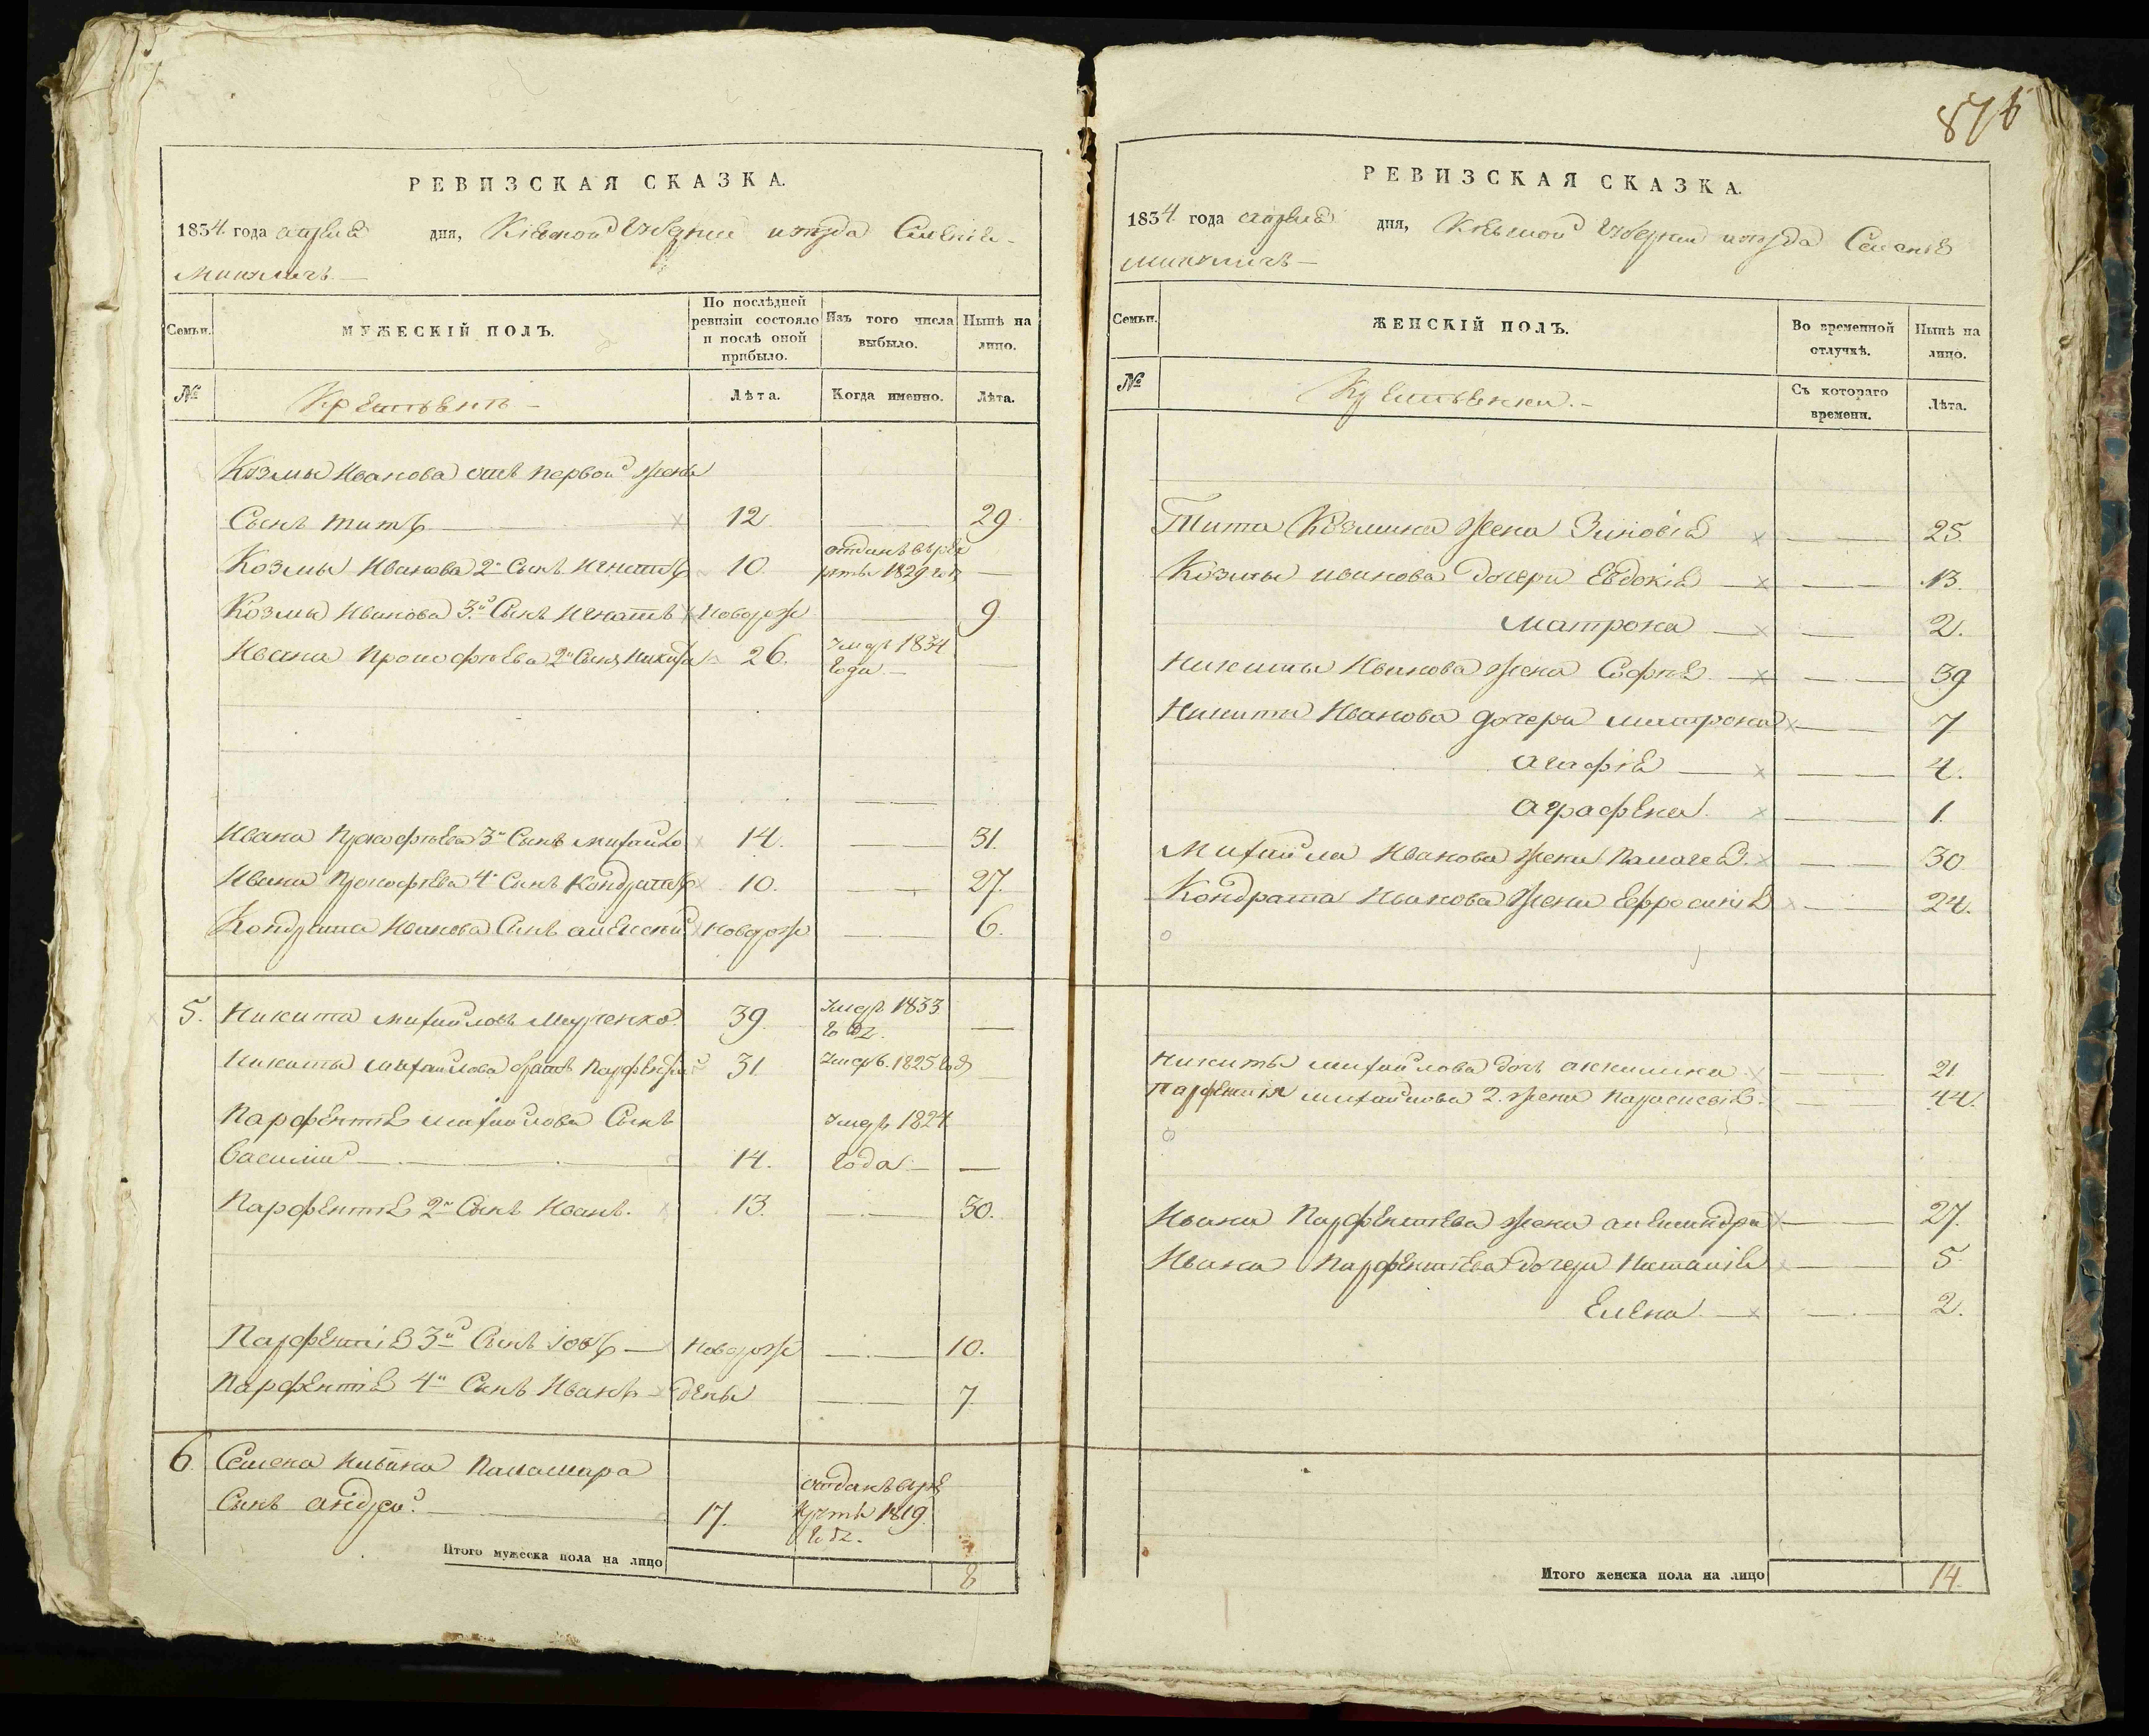 РЕВИЗСКАЯ СКАЗКА.
1834 года апреля дня, Кіевской Губерніи уезда Селенія
Семьи.
МУЖЕСКІЙ ПОЛЪ.
По послѣдней ревизіи состояло и послѣ оной прибыло.
Изъ того числа выбыло.
Нынѣ на лицо.
№
Крестьянъ
Лѣта.
Когда именно.
Лѣта.
Козмы Иванова отъ первой жены
Сынъ Титъ 12. 29.
Козмы Иванова 2й Сынъ Игнатъ 10. отданъ въ рекруты 1829 года
Козмы Иванова 3й Сынъ Игнатъ новорож 9.
Ивана Прокофьева 2й Сынъ Никита 26. Умеръ 1834
года
Ивана Прокофьева 3й Сынъ Михайло 14. 31.
Ивана Прокофьева 4й Сынъ Кондратъ 10. 27.
Кондрата Иванова Сынъ Алексей новорож 6.
5. Никита Михайловъ 39. Умеръ 1833
года
Никиты Михайлова братъ Парфентій 31. Умеръ 1825 года
Парфентія Михайлова Сынъ Умеръ 1824
Василій 14. года
Парфентія 2й Сынъ Иванъ. 13. 30.
Парфентія 3й Сынъ Іовъ новорож 10.
Парфентія 4й Сынъ Иванъ дены 7.
6. Семена Паламара
Сынъ Андрей 17. отданъ въ рекруты 1819 года
Итого мужеска пола на лицо 8
876
РЕВИЗСКАЯ СКАЗКА.
1834 года апреля дня, Кіевской Губерніи уезда Селенія
Семьи.
ЖЕНСКІЙ ПОЛЪ.
Во временной отлучкѣ.
Нынѣ на лицо.
№
Крестьянки.
Съ котораго времени.
Лѣта.
Тита Козмина жена Зиновія 25.
Козмы Иванова дочери Евдокія 13.
Матрона 2.
Никиты Иванова жена Софія 39
Никиты Иванова дочери Матрона 7
Агафія 4.
Аграфена 1.
Михайла Иванова жена Палагея 30
Кондрата Иванова жена Ефросинія 24.
Никиты Михайлова дочь Акилина 21
Парфентія Михайлова 2. жена Параскевія 44.
Ивана Парфентіева жена Александра 27.
Ивана Парфентіева дочери Наталія 5.
Елена 2.
Итого женска пола на лицо 14.